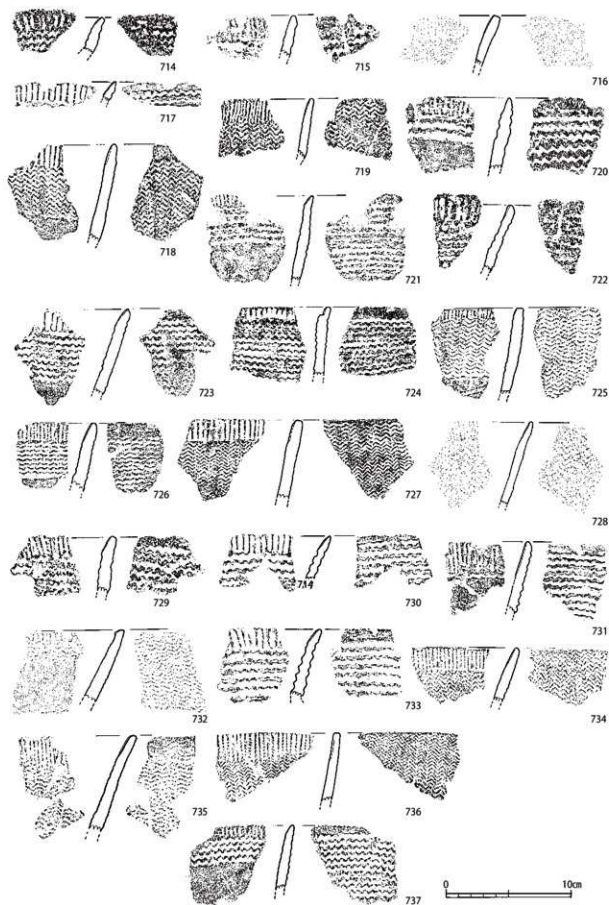 714
715
716
717
718
719
720
721
722
723
724
725
726
727
728
729
714
730
731
732
733
734
735
736
737
0
10cm